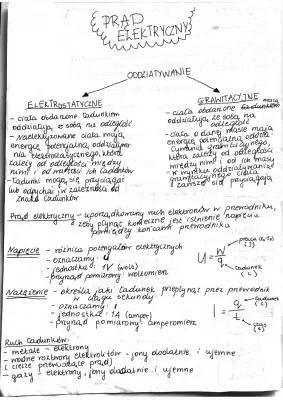 PRĄD
ELEKTRYCZNY
ODDZIAŁYWANIE
ELEKTROSTATYCZNE
- ciała obdarzone ładunkiem
oddziałują ze sobą na odległość
- naelektryzowane ciała mają
energię potencjalną oddziaływa-
nia elektrostatycznego, która
zależy od odległości między
nimi i od wartości ich ładunków
- ładunki mogą się przyciągać
lub odpychać w zależności od
znaku ładunków
GRAWITACYJNE
- ciała obdarzone masą
oddziałują ze sobą na
odległość
- ciała o danej masie mają
energię potencjalną oddzia-
ływania grawitacyjnego,
która zależy od odległości
między nimi i od ich masy
- w wyniku oddziaływania
grawitacyjnego ciała
zawsze się przyciągają
Prąd elektryczny - uporządkowany ruch elektronów w przewodniku,
żeby płynął konieczne jest istnienie napięcia
pomiędzy końcami przewodnika
Napięcie - różnica potencjałów elektrycznych
- oznaczamy: U
- jednostka: 1V (wolt)
- przyrząd pomiarowy: woltomierz
U = W/q
praca
(J)
ładunek
(C)
Natężenie - określa jaki ładunek przepłynął przez przewodnik
w ciągu sekundy
- oznaczamy: I
- jednostka: 1A (amper)
- przyrząd pomiarowy: amperomierz
I = q/t
ładunek
(C)
czas
(s)
Ruch ładunków:
- metale - elektrony
- wodne roztwory elektrolitów - jony dodatnie i ujemne
(ciecze przewodzące prąd)
- gazy - elektrony, jony dodatnie i ujemne